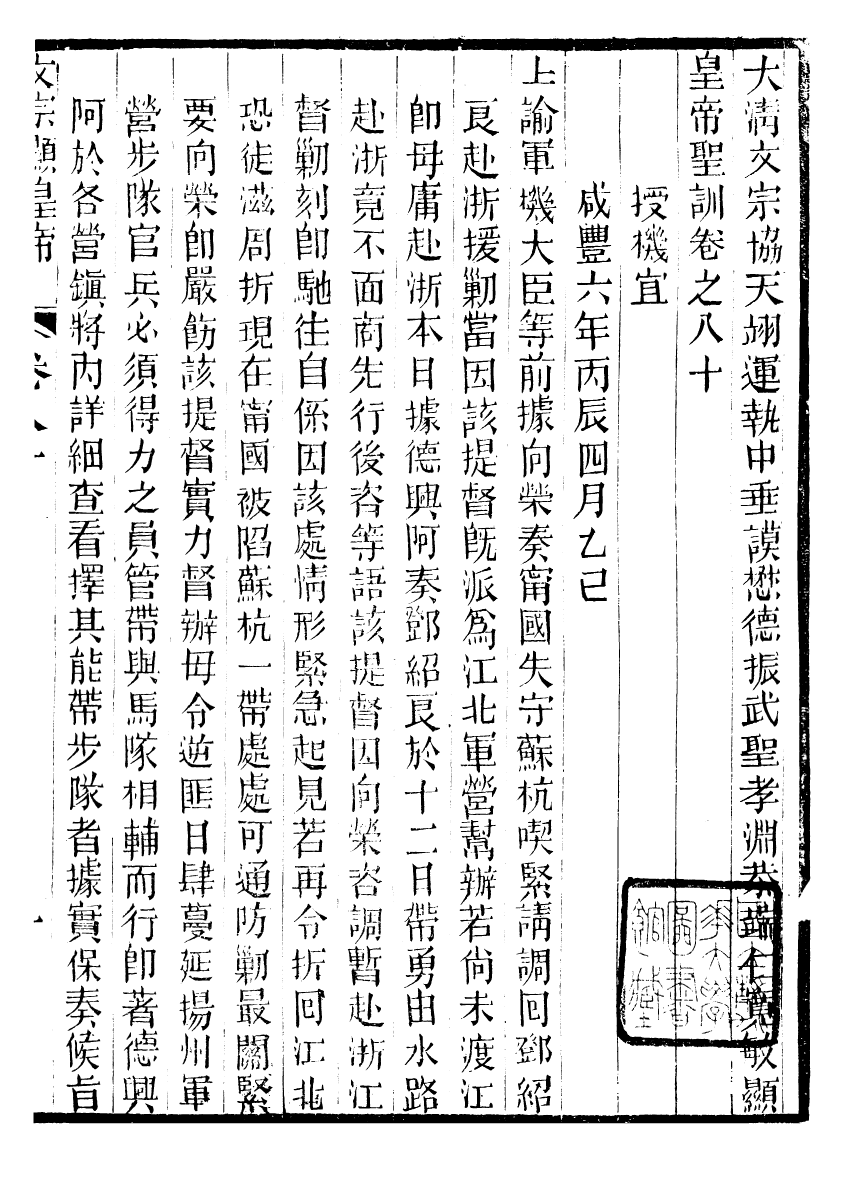 大清文宗協天翊運執中垂謨懋德振武聖孝淵恭端仁寬敏顯
皇帝聖訓卷之八十
授機宜
咸豐六年丙辰四月乙巳
上諭軍機大臣等前據向榮奏甯國失守蘇杭喫緊請調回鄧紹
良赴浙援剿當因該提督旣派爲江北軍營幫辦若尙未渡江
卽毋庸赴浙本日據德興阿奏鄧紹良於十二日帶勇由水路
赴浙竟不面商先行後咨等語該提督因向榮咨調暫赴浙江
督剿刻卽馳往自係因該處情形緊急起見若再令折回江北
恐徒滋周折現在甯國被陷蘇杭一帶處處可通防剿最關緊
要向榮卽嚴飭該提督實力督辦毋令逆匪日肆蔓延揚州軍
營步隊官兵必須得力之員管帶與馬隊相輔而行卽著德興
阿於各營鎭將內詳細查看擇其能帶步隊者據實保奏候旨
文宗顯皇帝 卷八十 一